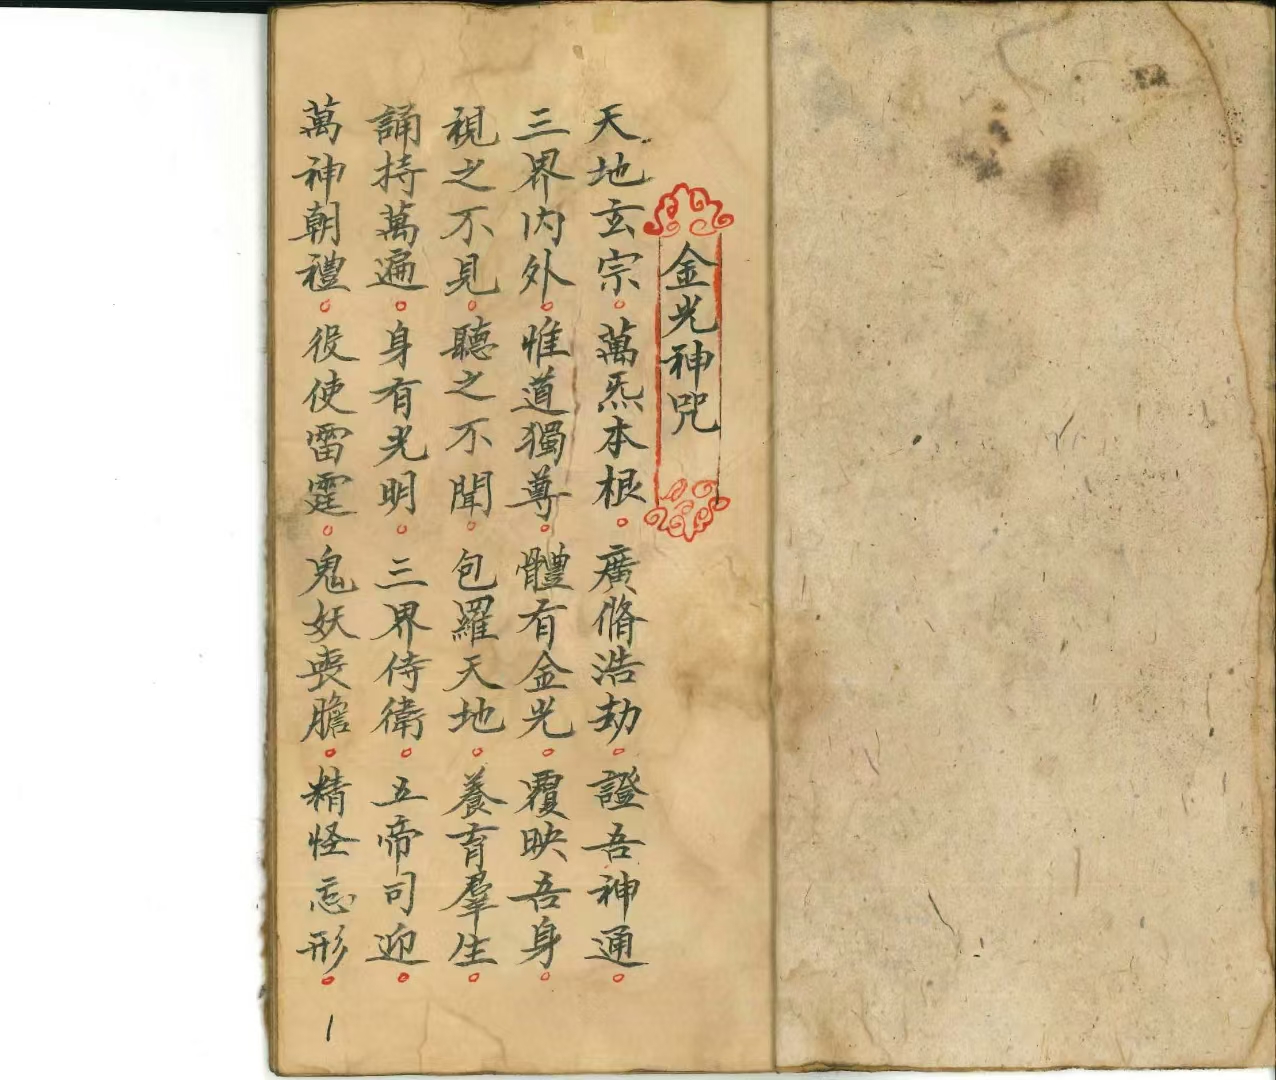 金光神咒
天地玄宗。萬炁本根。廣脩浩劫。證吾神通。
三界内外。惟道獨尊。體有金光。覆映吾身。
視之不見。聽之不聞。包羅天地。養育羣生。
誦持萬遍。身有光明。三界侍衛。五帝司迎。
萬神朝禮。役使雷霆。鬼妖喪膽。精怪忘形。
1